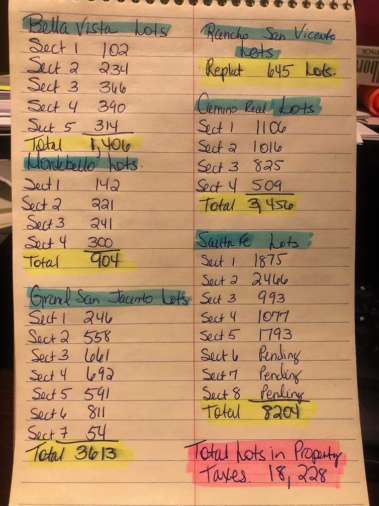 Bella Vista Lots
Sect 1 102
Sect 2 234
Sect 3 366
Sect 4 390
Sect 5 314
Total 1,406
Montebello Lots.
Sect 1 142
Sect 2 221
Sect 3 241
Sect 4 300
Total 904
Grand San Jacinto Lots
Sect 1 246
Sect 2 558
Sect 3 661
Sect 4 692
Sect 5 591
Sect 6 811
Sect 7 54
Total 3613
Rancho San Vicente
Lots
Replat 645 Lots.
Camino Real Lots
Sect 1 1106
Sect 2 1016
Sect 3 825
Sect 4 509
Total 3,456
Santa Fe Lots
Sect 1 1875
Sect 2 2466
Sect 3 993
Sect 4 1077
Sect 5 1793
Sect 6 Pending
Sect 7 Pending
Sect 8 Pending
Total 8204
Total Lots in Property
Taxes. 18,228